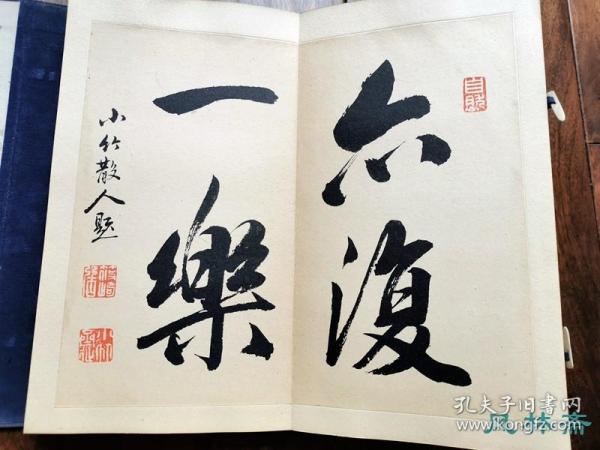 亦復
一樂
小竹散人題
孔夫子旧书网
www.kongfz.com
风林斋